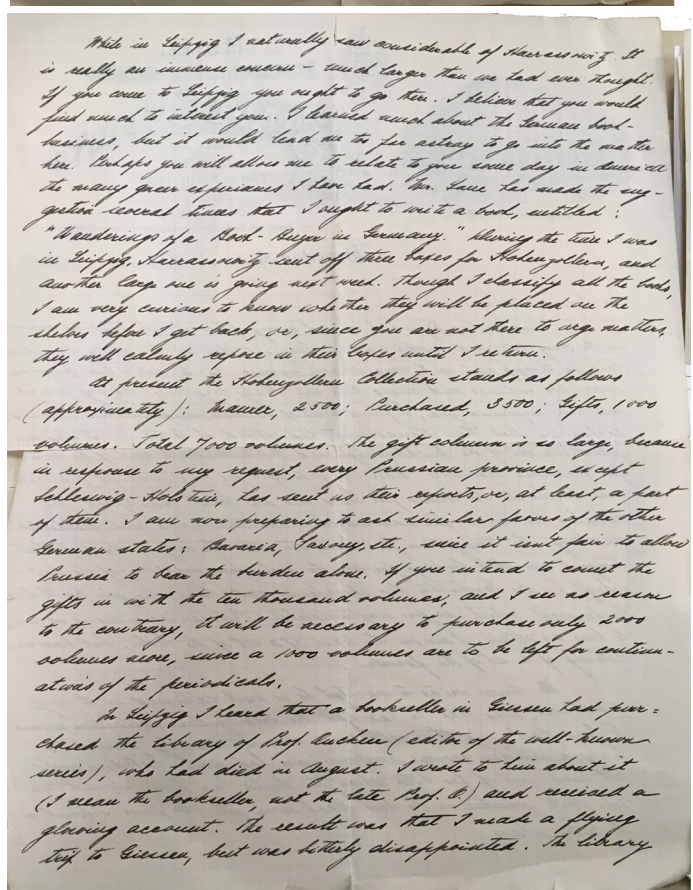 While in Leipzig I naturally saw considerable of Harrassowitz. It
is really an immense concern - much larger than we had ever thought.
If you come to Leipzig you ought to go there. I believe that you would
find much to interest you. I learned much about the German book-
business, but it would lead me too far astray to go into the matter
here. Perhaps you will allow me to relate to you some day in America
the many queer experiences I have had. Mr. Lane has made the sug-
gestion several times that I ought to write a book, entitled:
"Wanderings of a Book-Buyer in Germany." During the time I was
in Leipzig, Harrassowitz sent off three boxes for Hohenzollern, and
another large one is going next week. Though I classify all the books,
I am very curious to know whether they will be placed on the
shelves before I get back, or, since you are not there to urge matters,
they will calmly repose in their boxes until I return.
At present the Hohenzollern Collection stands as follows
(approximately): Maurer, 2500; Purchased, 3500; Gifts, 1000
volumes. Total 7000 volumes. The gift column is so large, because
in response to my request, every Prussian province, except
Schleswig-Holstein, has sent us their reports, or, at least, a part
of them. I am now preparing to ask similar favors of the other
German states: Bavaria, Saxony, etc., since it isn't fair to allow
Prussia to bear the burden alone. If you intend to count the
gifts in with the ten thousand volumes, and I see no reason
to the contrary, it will be necessary to purchase only 2000
volumes more, since a 1000 volumes are to be left for continu-
ations of the periodicals.
In Leipzig I heard that a bookseller in Giessen had pur=
chased the library of Prof. Oncken (editor of the well-known
series), who had died in August. I wrote to him about it
(I mean the bookseller, not the late Prof. O.) and received a
glowing account. The result was that I made a flying
trip to Giessen, but was bitterly disappointed. The library